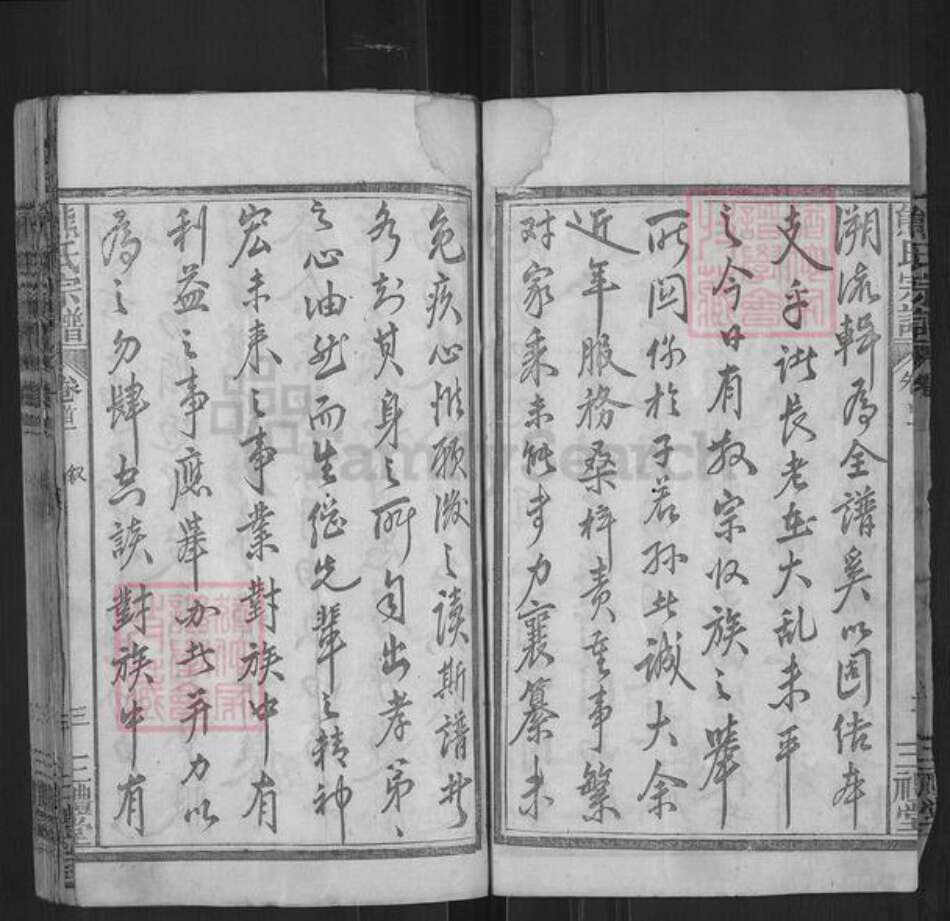 溯流輯為全譜奚以固佶本
支乎諸長老在大乱未平
之今日有敬宗收族之舉
所関係於子若孫此誠大余
近年服務桑梓責重事繁
對家乘未能專力襄纂未
免疚心惟願後之讀斯譜者
各知其身之所自出孝弟
之心油然而生繼先輩之精神
宏未来之事業對族中有
利益之事應舉办者并力以
為之勿肆空談對族中有
熊氏宗譜
卷首
叙
三
三禮堂
FamilySearch